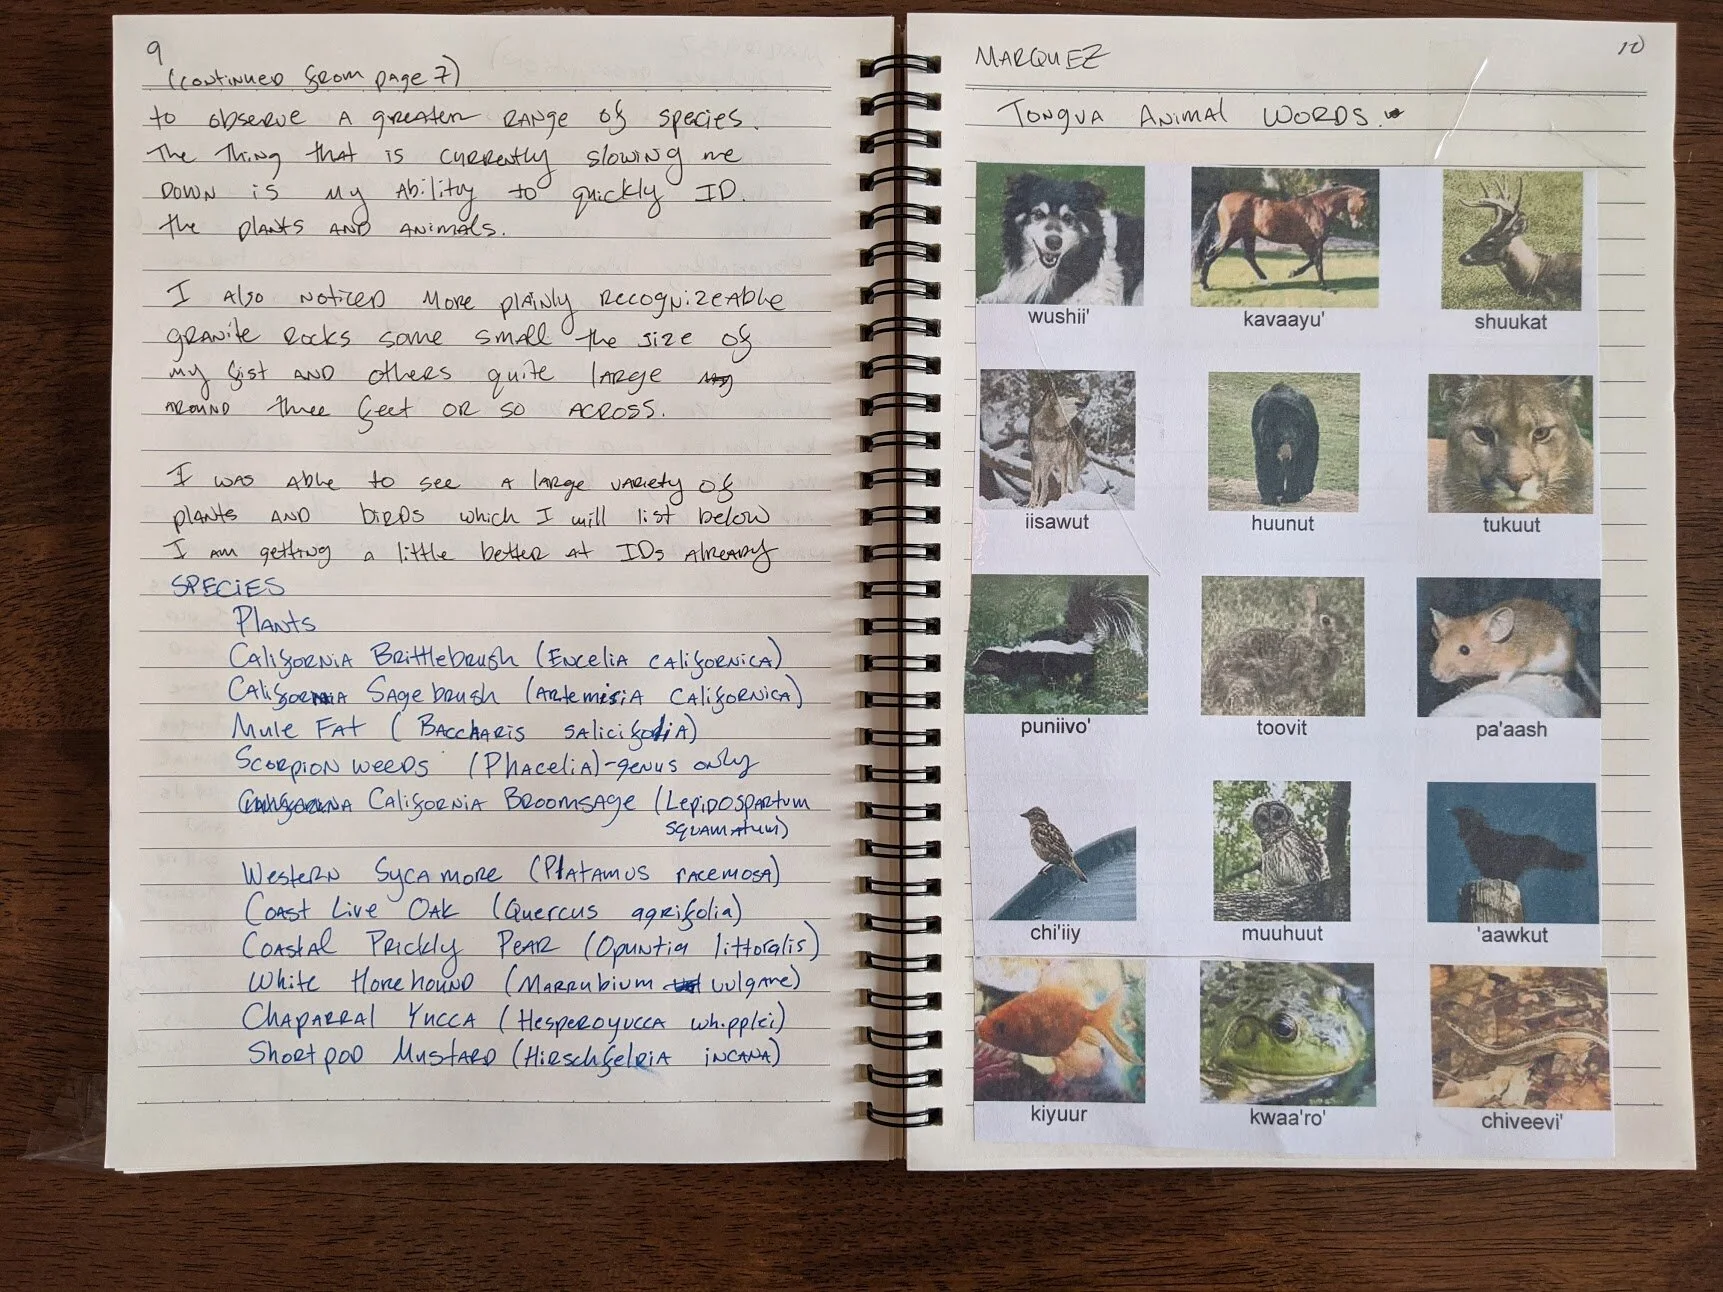 9
(continued from page 7)
to observe a greater range of species.
The thing that is currently slowing me
down is my ability to quickly ID.
the plants and animals.
I also noticed more plainly recognizeable
granite rocks some small the size of
my fist and others quite large
around three feet or so across.
I was able to see a large variety of
plants and birds which I will list below
I am getting a little better at IDs already
SPECIES
Plants
California Brittlebrush (Encelia californica)
California Sagebrush (Artemisia californica)
Mule Fat (Baccharis salicifolia)
Scorpion weeds (Phacelia)-genus only
California Broomsage (Lepidospartum
squamatum)
Western Sycamore (Platamus racemosa)
Coast Live Oak (Quercus agrifolia)
Coastal Prickly Pear (Opuntia littoralis)
White Horehound (Marrubium vulgare)
Chaparral Yucca (Hesperoyucca whipplei)
Shortpod Mustard (Hirschfelria incana)
MARQUEZ
10
Tongva Animal Words.
wushii' kavaayu' shuukat
iisawut huunut tukuut
puniivo' toovit pa'aash
chi'iiy muuhuut 'aawkut
kiyuur kwaa'ro' chiveevi'